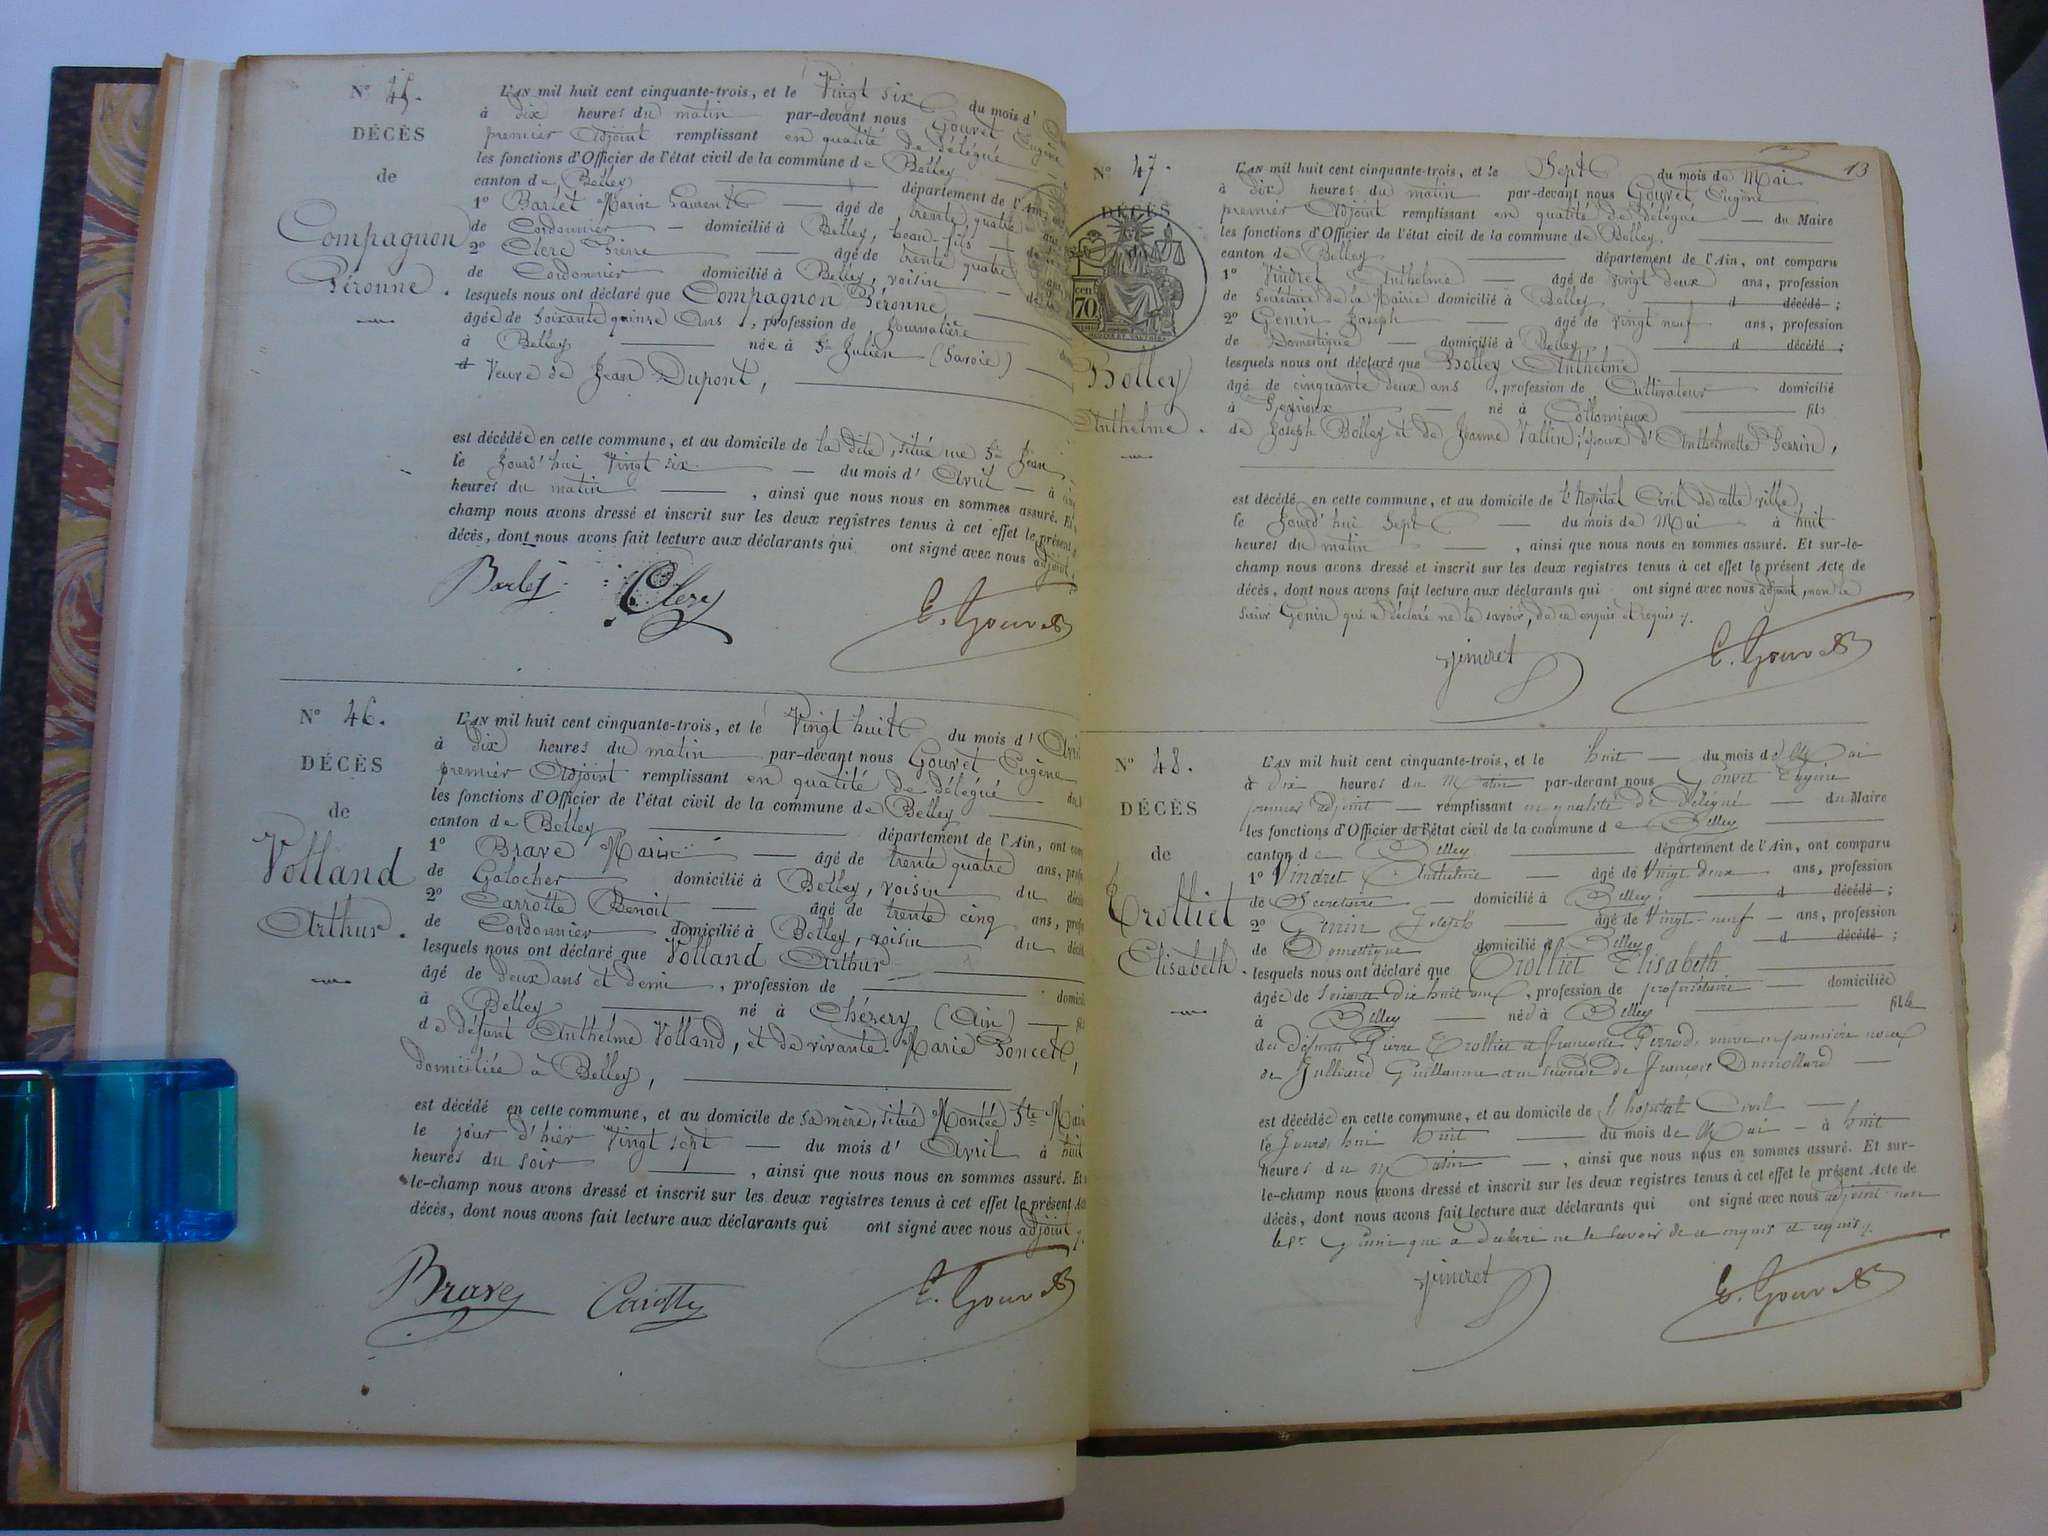 N° 45.
DÉCÈS
de
Compagnon
Péronne.
L'AN mil huit cent cinquante-trois, et le Vingt six du mois d'
à dix heures du matin par-devant nous Gouvet Eugène
premier Adjoint remplissant en qualité de délégué
les fonctions d'Officier de l'état civil de la commune de Belley
canton de Belley département de l'Ain,
1° Barlet Marin Laurent âgé de trente quatre ans
de Cordonnier domicilié à Belley, beau-fils
2° Clerc Pierre âgé de trente quatre
de Cordonnier domicilié à Belley, voisin
lesquels nous ont déclaré que Compagnon Péronne
âgée de Soixante quinze Ans, profession de Journalière
à Belley née à St Julien (Savoie)
Veuve de Jean Dupont,
est décédée en cette commune, et au domicile de la dite, situé rue St Jean
le Jourd'hui Vingt six du mois d'Avril à
heures du matin, ainsi que nous nous en sommes assuré. Et
champ nous avons dressé et inscrit sur les deux registres tenus à cet effet le présent
décès, dont nous avons fait lecture aux déclarants qui ont signé avec nous adjoint
Barlet Clerc E. Gouvet
N° 46.
DÉCÈS
de
Volland
Arthur.
L'AN mil huit cent cinquante-trois, et le Vingt huit du mois d'Avril
à dix heures du matin par-devant nous Gouvet Eugène
premier Adjoint remplissant en qualité de délégué
les fonctions d'Officier de l'état civil de la commune de Belley
canton de Belley département de l'Ain, ont
1° Brave Marin âgé de trente quatre ans,
de Galocher domicilié à Belley, voisin du
2° Carrotte Benoit âgé de trente cinq ans,
de Cordonnier domicilié à Belley, voisin du
lesquels nous ont déclaré que Volland Arthur
âgé de deux ans et demi, profession de
à Belley né à Chézery (Ain)
de défunt Anthelme Volland, et de vivante Marie Poncet,
domiciliée à Belley,
est décédé en cette commune, et au domicile de sa mère, situé Montée Ste
le jour d'hier Vingt sept du mois d'Avril à huit
heures du soir, ainsi que nous nous en sommes assuré. Et
le-champ nous avons dressé et inscrit sur les deux registres tenus à cet effet le présent
décès, dont nous avons fait lecture aux déclarants qui ont signé avec nous adjoint
Brave Carotte E. Gouvet
13
N° 47.
DÉCÈS
cen 70
Bolley
Anthelme.
L'AN mil huit cent cinquante-trois, et le Sept du mois de Mai
à dix heures du matin par-devant nous Gouvet Eugène
premier Adjoint remplissant en qualité de délégué du Maire
les fonctions d'Officier de l'état civil de la commune de Belley.
canton de Belley département de l'Ain, ont comparu
1° Vindret Anthelme âgé de vingt deux ans, profession
de Secrétaire de la Mairie domicilié à Belley d décédé ;
2° Genin Joseph âgé de vingt neuf ans, profession
de Domestique domicilié à Belley d décédé ;
lesquels nous ont déclaré que Bolley Anthelme
âgé de cinquante deux ans, profession de Cultivateur domicilié
à né à Collomieux fils
de Joseph Bolley et de Jeanne Vallin; époux d'Anthelmette Perrin,
est décédé en cette commune, et au domicile de l'hopital Civil de cette ville,
le Jourd'hui Sept du mois de Mai à huit
heures du matin, ainsi que nous nous en sommes assuré. Et sur-le-
champ nous avons dressé et inscrit sur les deux registres tenus à cet effet le présent Acte de
décès, dont nous avons fait lecture aux déclarants qui ont signé avec nous adjoint, non le
sieur Genin qui a déclaré ne le savoir, de ce enquis et requis
Vindret E. Gouvet
N° 48.
DÉCÈS
de
Trolliet
Elisabeth.
L'AN mil huit cent cinquante-trois, et le huit du mois de Mai
à dix heures du Matin par-devant nous Gouvet Eugène
premier adjoint remplissant en qualité de délégué du Maire
les fonctions d'Officier de l'état civil de la commune de Belley
canton de Belley département de l'Ain, ont comparu
1° Vindret Anthelme âgé de Vingt deux ans, profession
de Secrétaire domicilié à Belley d décédé ;
2° Genin Joseph âgé de Vingt-neuf ans, profession
de Domestique domicilié à Belley d décédé ;
lesquels nous ont déclaré que Trolliet Elisabeth
âgée de Soixante dix huit ans, profession de propriétaire domiciliée
à Belley née à Belley fille
des défunts Pierre Trolliet et Françoise Pierrod, veuve en première noces
de Julliand Guillaume et en seconde de François Dumollard
est décédée en cette commune, et au domicile de l'hopital Civil
le Jourd'hui huit du mois de Mai à huit
heures du Matin, ainsi que nous nous en sommes assuré. Et sur-
le-champ nous avons dressé et inscrit sur les deux registres tenus à cet effet le présent Acte de
décès, dont nous avons fait lecture aux déclarants qui ont signé avec nous adjoint non
le Sr Genin qui a déclaré ne le savoir de ce enquis et requis
Vindret E. Gouvet